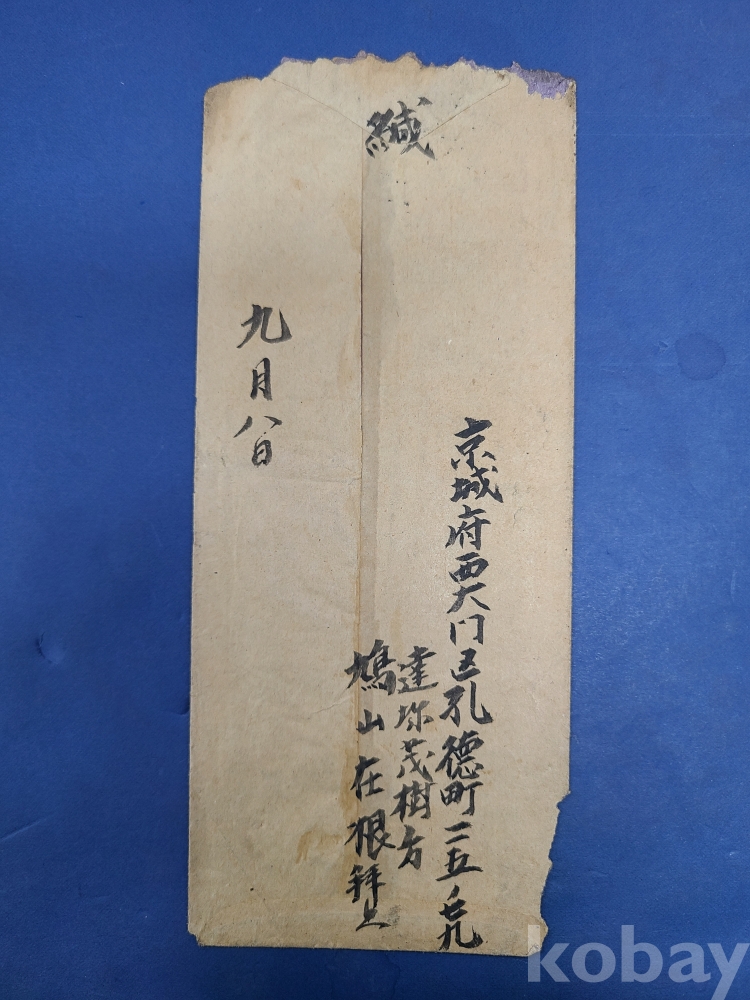 緘
京城府西大门区孔德町二五ノ七九
達城茂樹方
鳩山在根拜上
九月八日
kobay